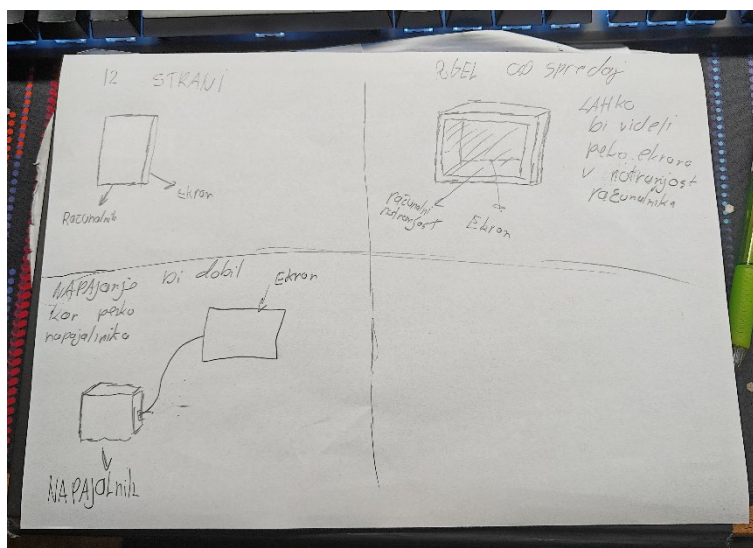 12 STRANI
Računalnik
Ekran
PGEL OD spredaj
LAHko
bi videli
preko ekrana
v notranjost
računalnika
računalnik
notranjost
Ekran
NAPAJanje bi dobil
kar preko
napajalnika
Ekran
NAPAJALnik